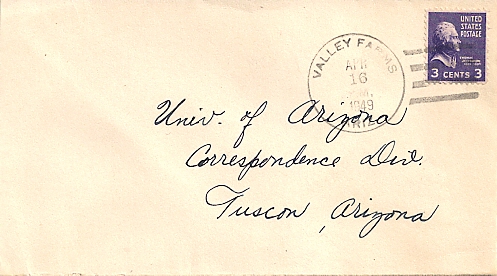 UNITED
STATES
POSTAGE
3 CENTS 3
VALLEY FARMS
APR
16
M.
1949
ARIZ.
Univ. of Arizona
Correspondence Div.
Tuscon, Arizona